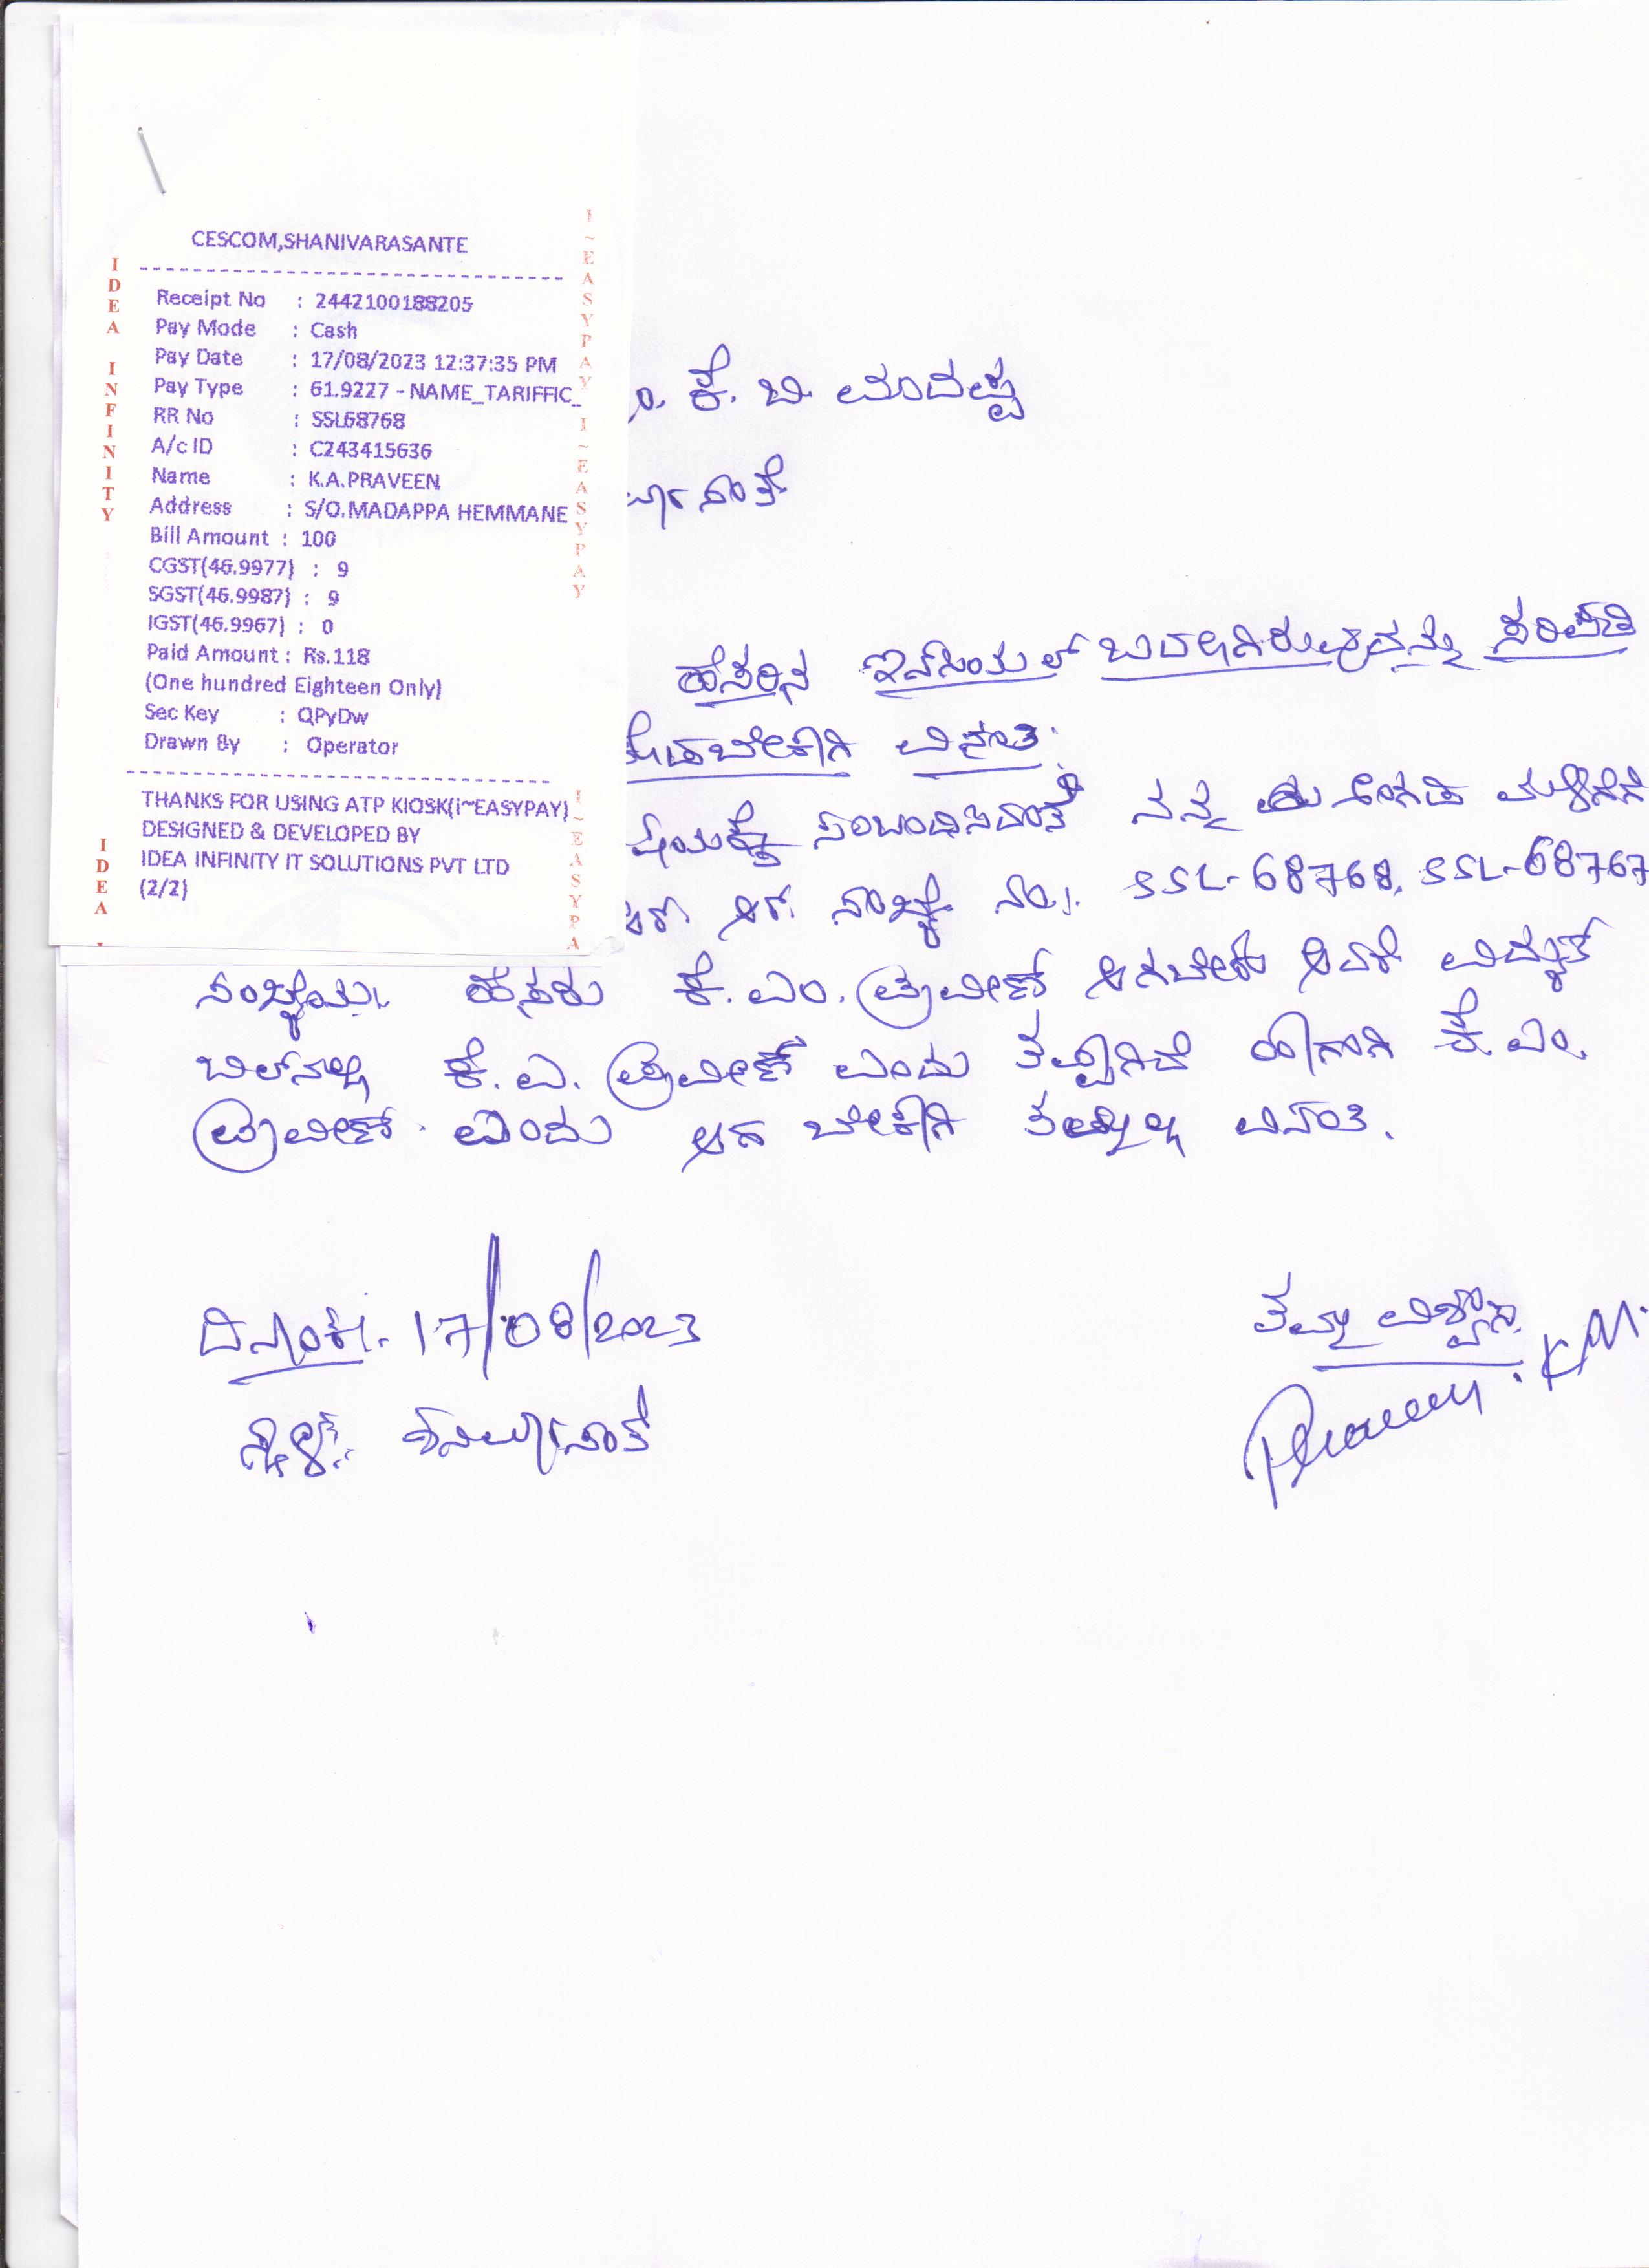 CESCOM,SHANIVARASANTE
Receipt No : 2442100188205
Pay Mode : Cash
Pay Date : 17/08/2023 12:37:35 PM
Pay Type : 61.9227 - NAME_TARIFFIC_
RR No : SSL68768
A/c ID : C243415636
Name : K.A.PRAVEEN
Address : S/O.MADAPPA HEMMANE
Bill Amount : 100
CGST(46.9977) : 9
SGST(46.9987) : 9
IGST(46.9967) : 0
Paid Amount : Rs.118
(One hundred Eighteen Only)
Sec Key : QPyDw
Drawn By : Operator
THANKS FOR USING ATP KIOSK(i~EASYPAY)
DESIGNED & DEVELOPED BY
IDEA INFINITY IT SOLUTIONS PVT LTD
(2/2)
IDEA INFINITY
IDEA
I~EASYPAY I~EASYPAY
I~EASYPA
ಕೆ. ಬಿ. ಮಾದಪ್ಪ
ಸಂತೆ
ಹೆಸರಿನ ಇನ್‌ಸಿಯಲ್ ಬದಲಾಗಿರುವುದನ್ನು ಸರಿಪಡಿ
ಕೊಡಬೇಕಾಗಿ ವಿನಂತಿ.
ಸಂಬಂದಿಸಿದಂತೆ ನನ್ನ ಅಂಗಡಿ ಮಳಿಗೆಗೆ
ಆರ್. ಆರ್. ಸಂಖ್ಯೆ ನಂ. SSL-68768, SSL-68767
ಸಂಖ್ಯೆಯ ಹೆಸರು ಕೆ. ಎಂ. ಪ್ರವೀಣ್ ಆಗಬೇಕು ಆದರೆ ವಿದ್ಯುತ್
ಬಿಲ್‌ನಲ್ಲಿ ಕೆ. ಎ. ಪ್ರವೀಣ್ ಎಂದು ತಪ್ಪಾಗಿದೆ ಹಾಗಾಗಿ ಕೆ. ಎಂ.
ಪ್ರವೀಣ್ ಎಂದು ಆಗ ಬೇಕಾಗಿ ತಮ್ಮಲ್ಲಿ ವಿನಂತಿ.
ದಿನಾಂಕ. 17/08/2023
ತಮ್ಮ ವಿಶ್ವಾಸಿ
Praveen. K.M.
ಸ್ಥಳ: ಶನಿವಾರಸಂತೆ